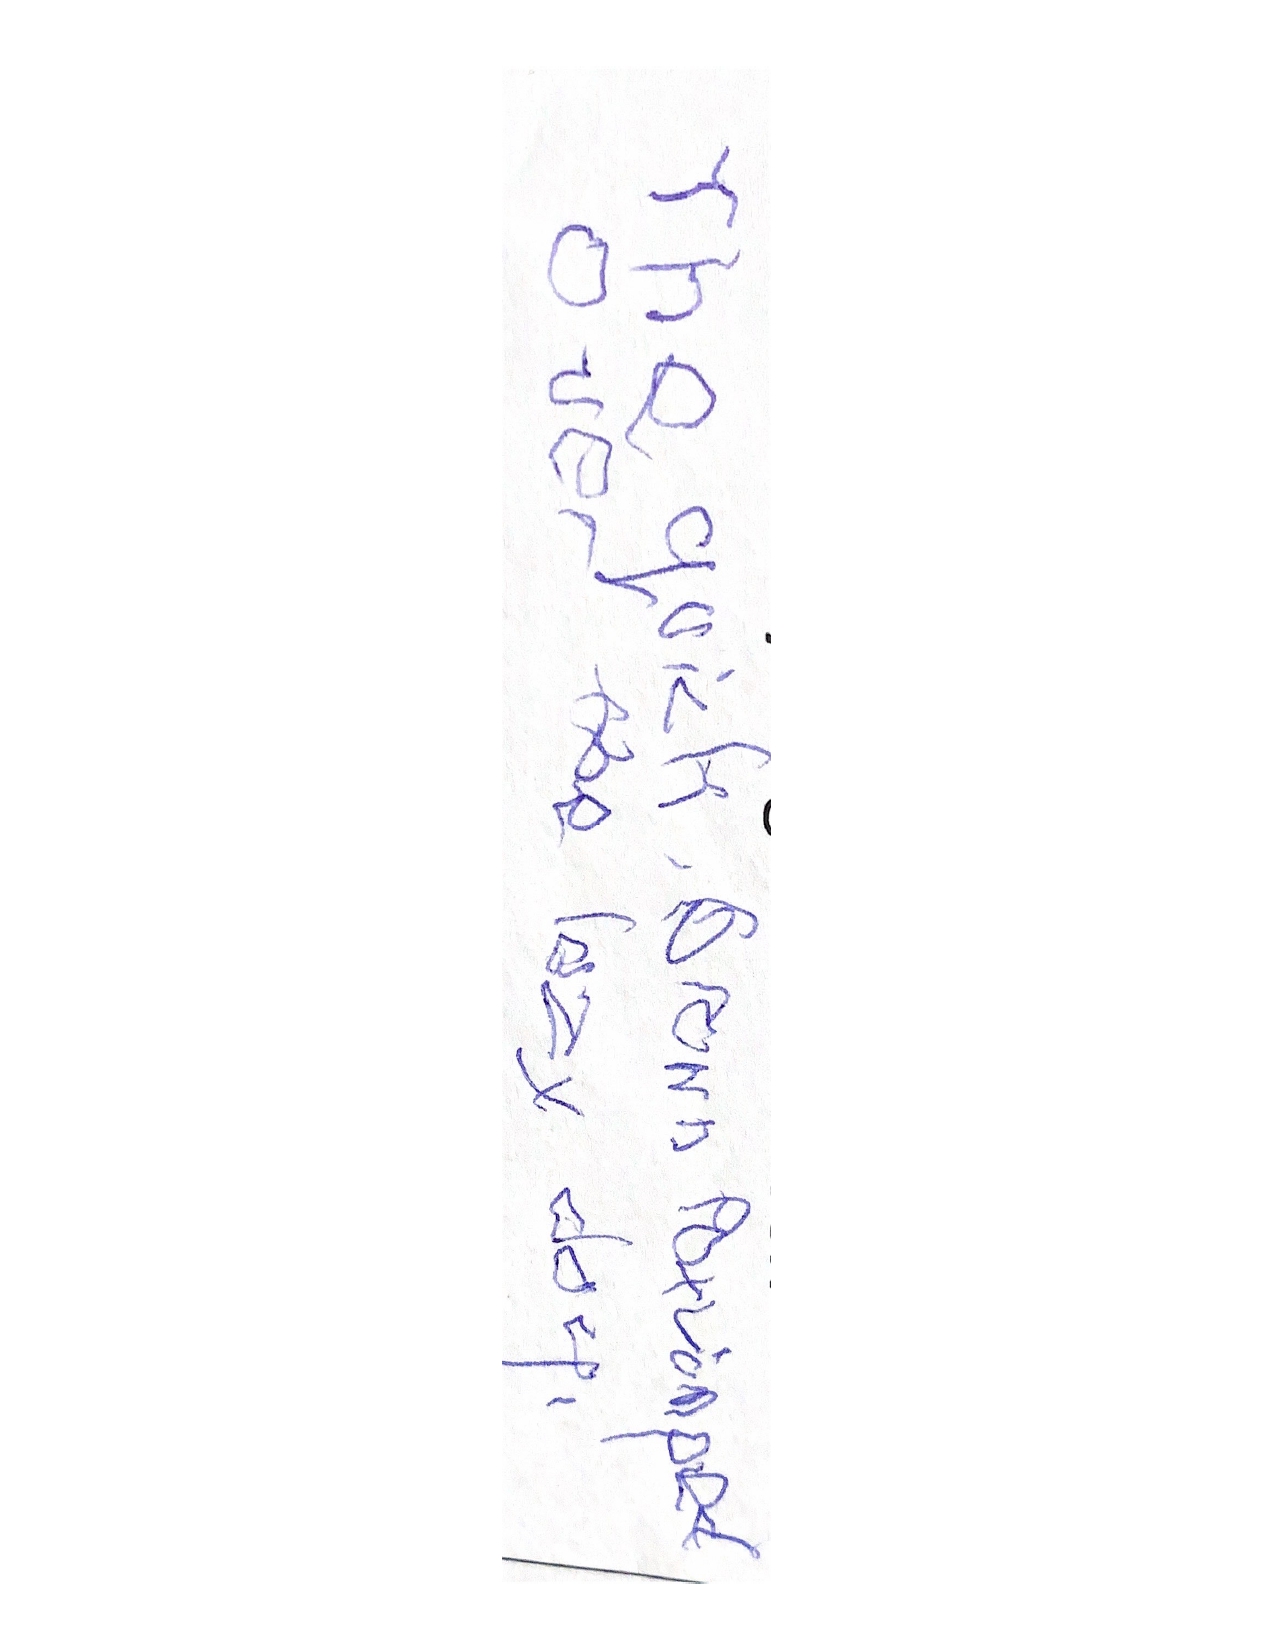 The quick, brown fox jumped
over the lazy dog.